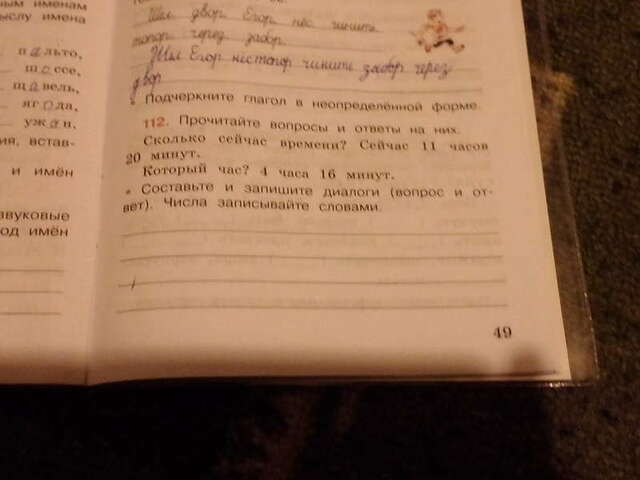 ным именам
ыслу имена
п а льто,
ш о ссе,
щ а вель,
яг о да,
уж и н,
ия, встав-
и имён
звуковые
од имён
Шёл двор. Егор нёс чинить
топор через забор.
Шёл Егор нес топор чинить забор через
двор
• Подчеркните глагол в неопределённой форме.
112. Прочитайте вопросы и ответы на них.
Сколько сейчас времени? Сейчас 11 часов
20 минут.
Который час? 4 часа 16 минут.
• Составьте и запишите диалоги (вопрос и от-
вет). Числа записывайте словами.
49